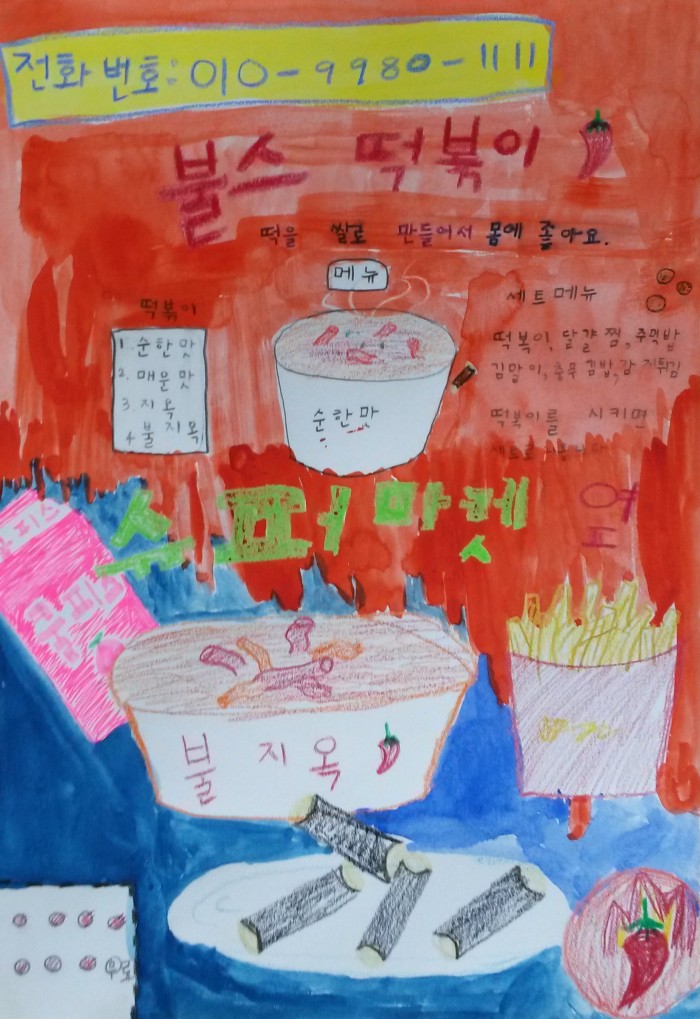 전화 번호: 010-9980-1111
불스 떡볶이
떡을 쌀로 만들어서 몸에 좋아요.
메뉴
떡볶이
1. 순한맛
2. 매운맛
3. 지옥
4. 불지옥
순한맛
세트메뉴
떡볶이, 달걀찜, 주먹밥
김말이, 충무김밥, 감자튀김
떡볶이를 시키면
슈퍼마켓
옆
쿨피스
불지옥
무료